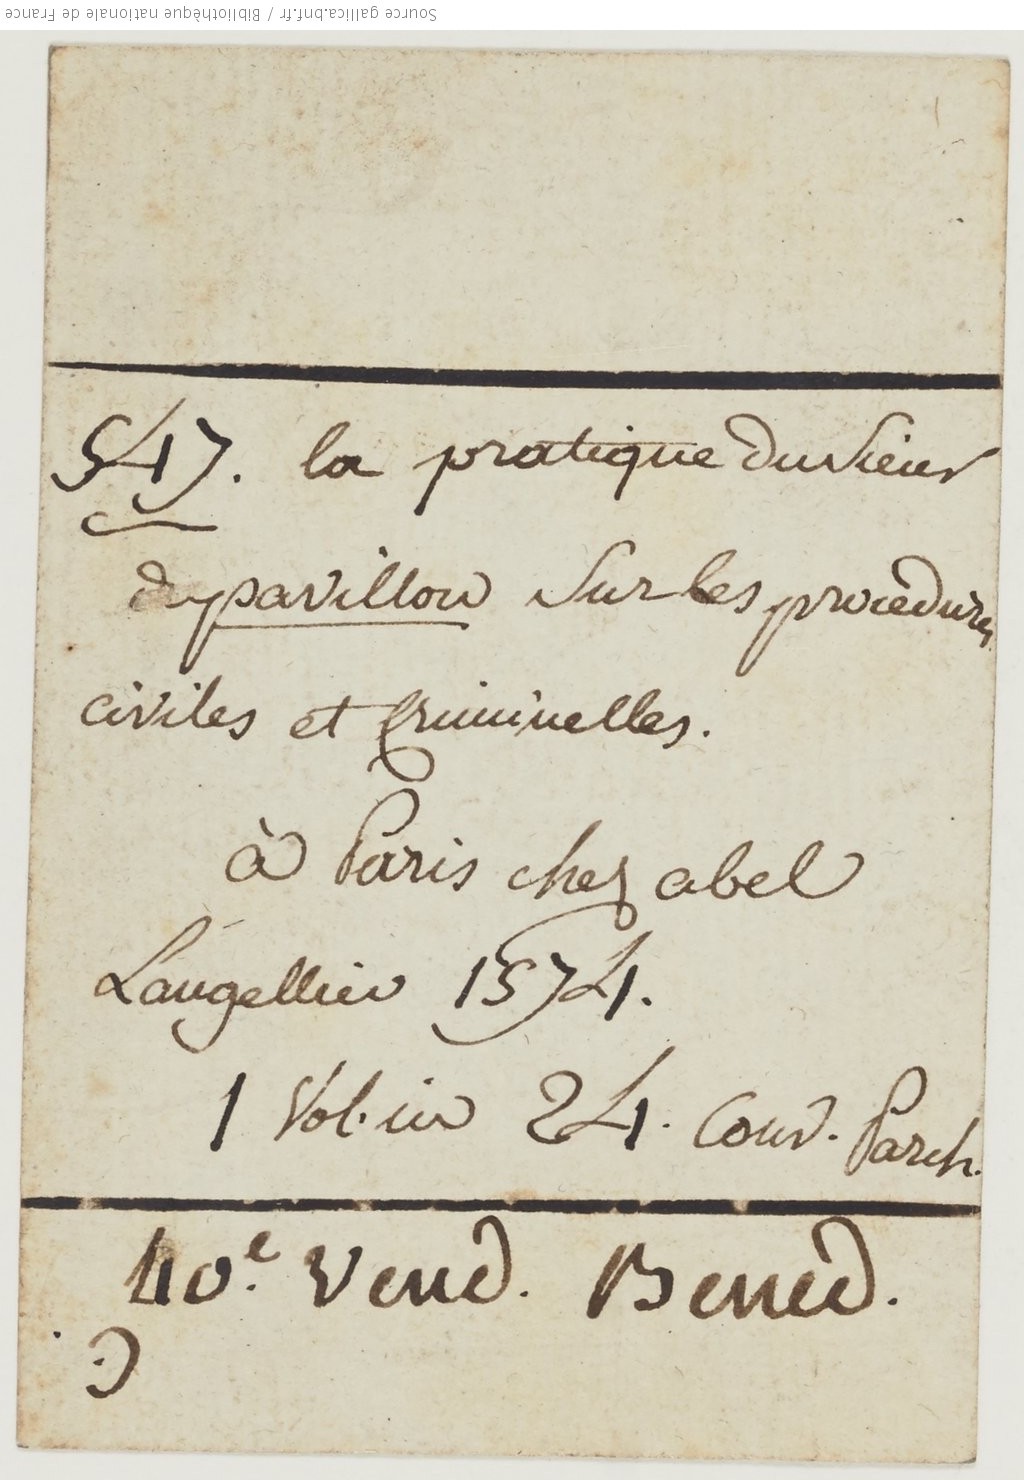 Source gallica.bnf.fr / Bibliothèque nationale de France
547. la pratique du Sieur
du pavillon Sur les procedures
civiles et Criminelles.
à Paris chez abel
Langellier 1574.
1 Vol. in 24. Couv. Parch.
40e. Vend. Bened.